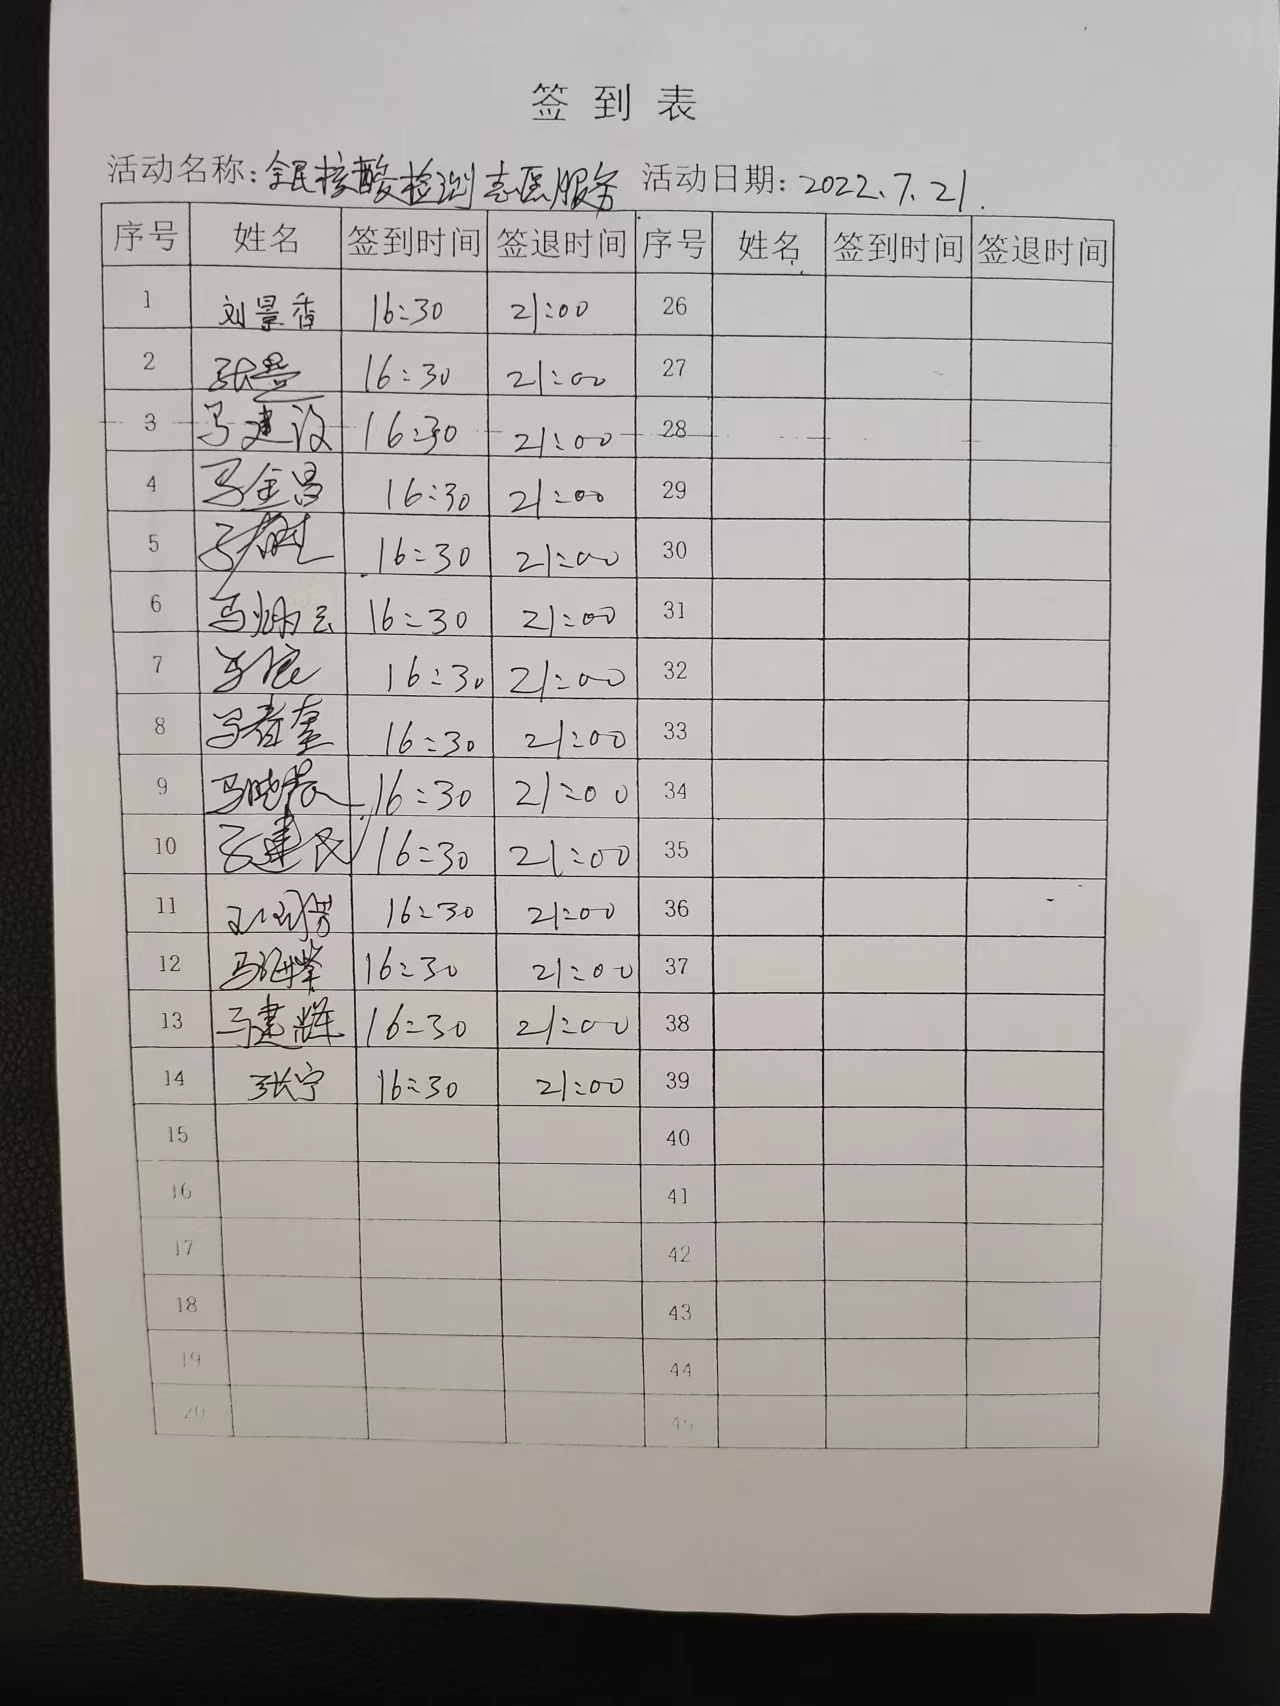 签到表
活动名称：全民核酸检测志愿服务 活动日期：2022.7.21.
序号 姓名 签到时间 签退时间 序号 姓名 签到时间 签退时间
1 刘景香 16:30 21:00 26
2 16:30 21:00 27
3 马建设 16:30 21:00 28
4 马金昌 16:30 21:00 29
5 16:30 21:00 30
6 马炳云 16:30 21:00 31
7 16:30 21:00 32
8 16:30 21:00 33
9 马晓春 16:30 21:00 34
10 马建民 16:30 21:00 35
11 16:30 21:00 36
12 16:30 21:00 37
13 马建辉 16:30 21:00 38
14 张宁 16:30 21:00 39
15 40
16 41
17 42
18 43
19 44
20 45